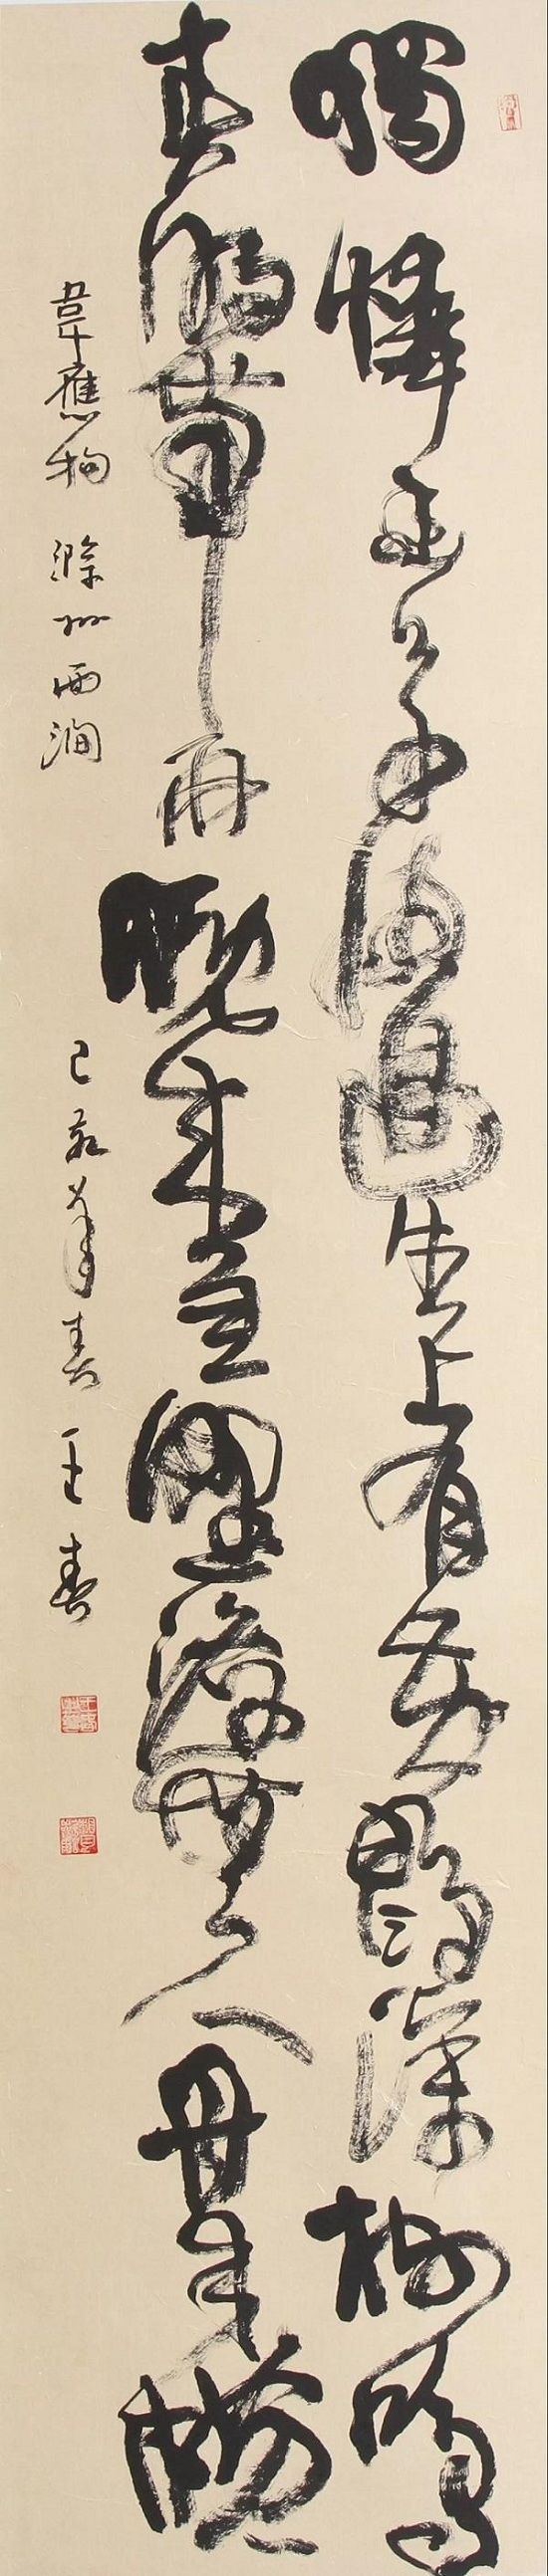 獨憐幽草澗邊生上有黃鸝深樹鳴
春潮帶雨晚來急野渡無人舟自橫
韋應物 滁州西澗 己亥年春 王春